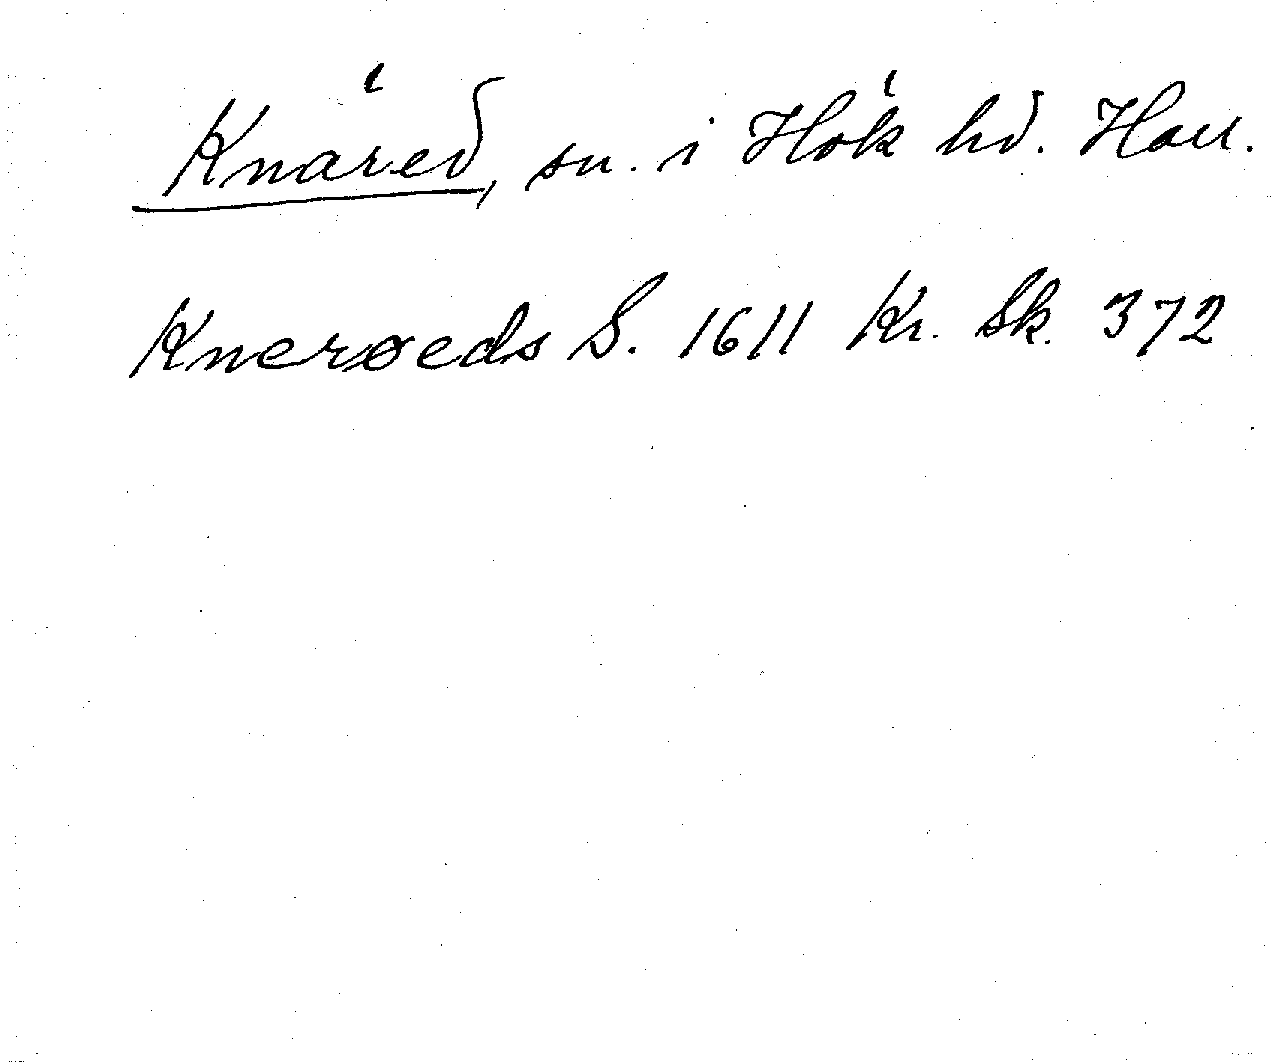 Knäred, sn. i Hök hd. Hall.
Knerøeds S. 1611 Kr. Sk. 372